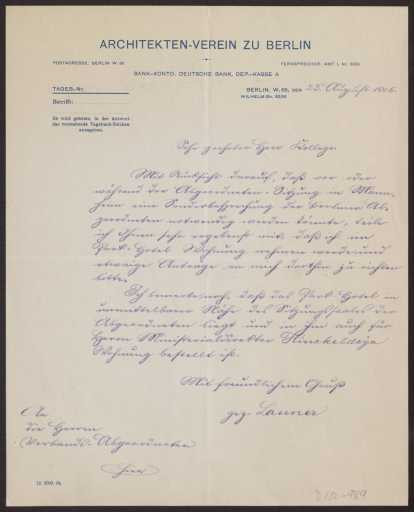 ARCHITEKTEN-VEREIN ZU BERLIN
POSTADRESSE: BERLIN W. 66
FERNSPRECHER: AMT I, Nr.
BANK-KONTO: DEUTSCHE BANK, DEP.-KASSE A
TAGEB.-Nr.
BERLIN, W. 66, DEN 23. August 1906.
WILHELM-Str. 92/93
Betrifft:
Es wird gebeten, in der Antwort
das vorstehende Tagebuch-Zeichen
anzugeben.
Sehr geehrter Herr Kollege
Mit Rücksicht darauf, daß vor oder
während der Abgeordneten-Sitzung in Mann-
heim eine Sonderbesprechung der Berliner Ab-
geordneten notwendig werden könnte, teile
ich Ihnen sehr ergebenst mit, daß ich im
Park-Hotel Wohnung nehmen werde und
etwaige Anträge an mich dorthin zu richten
bitte.
Ich bemerke noch, daß das Park-Hotel in
unmittelbarer Nähe des Sitzungssaales der
Abgeordneten liegt und in ihm auch für
Herrn Ministerialdirektor Hinckeldeyn
Wohnung bestellt ist.
Mit freundlichem Gruß
gez. Launer
An
die Herren
Verbands-Abgeordneten
hier